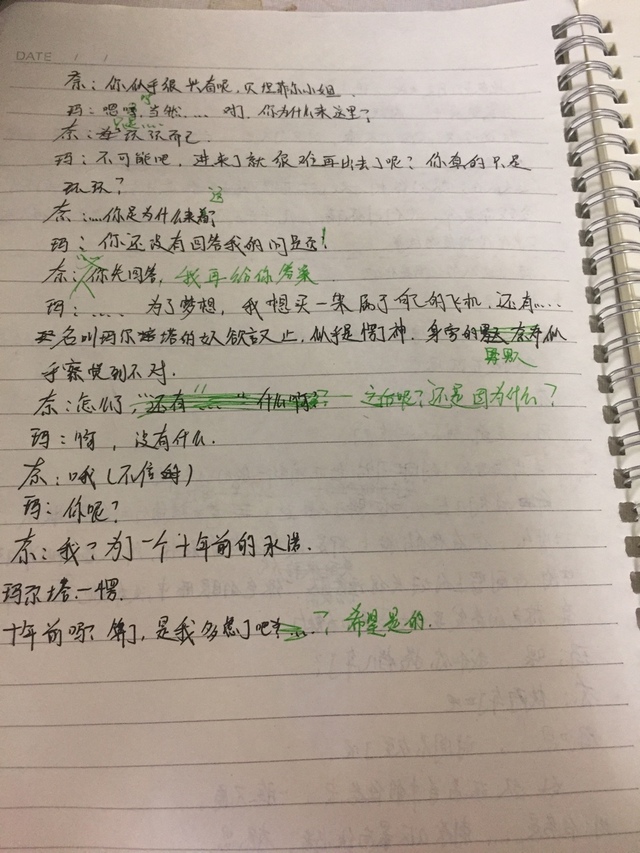 DATE / /
奈：你似乎很兴奋呢，贝坦菲尔小姐．
玛：嗯嗯，当然……对了，你为什么来这里？
奈：只是……玩玩而已．
玛：不可能吧，进来了就很难再出去了呢？你真的只是
玩玩？
奈：……你是为什么来着？
玛：你还没有回答我的问题！
奈：你先回答，我再给你答案
玛：……为了梦想，我想买一架属于自己的飞机，还有……
名叫玛尔塔的女欲言又止，似乎是愣了神．身旁的男人似
乎察觉到不对．
奈：怎么了，还有什么啊？还是因为什么？
玛：啊，没有什么．
奈：哦（不信）
玛：你呢？
奈：我？为了一个十年前的承诺．
玛尔塔一愣．
十年前吗？算了，是我多想了吧……？希望是的．